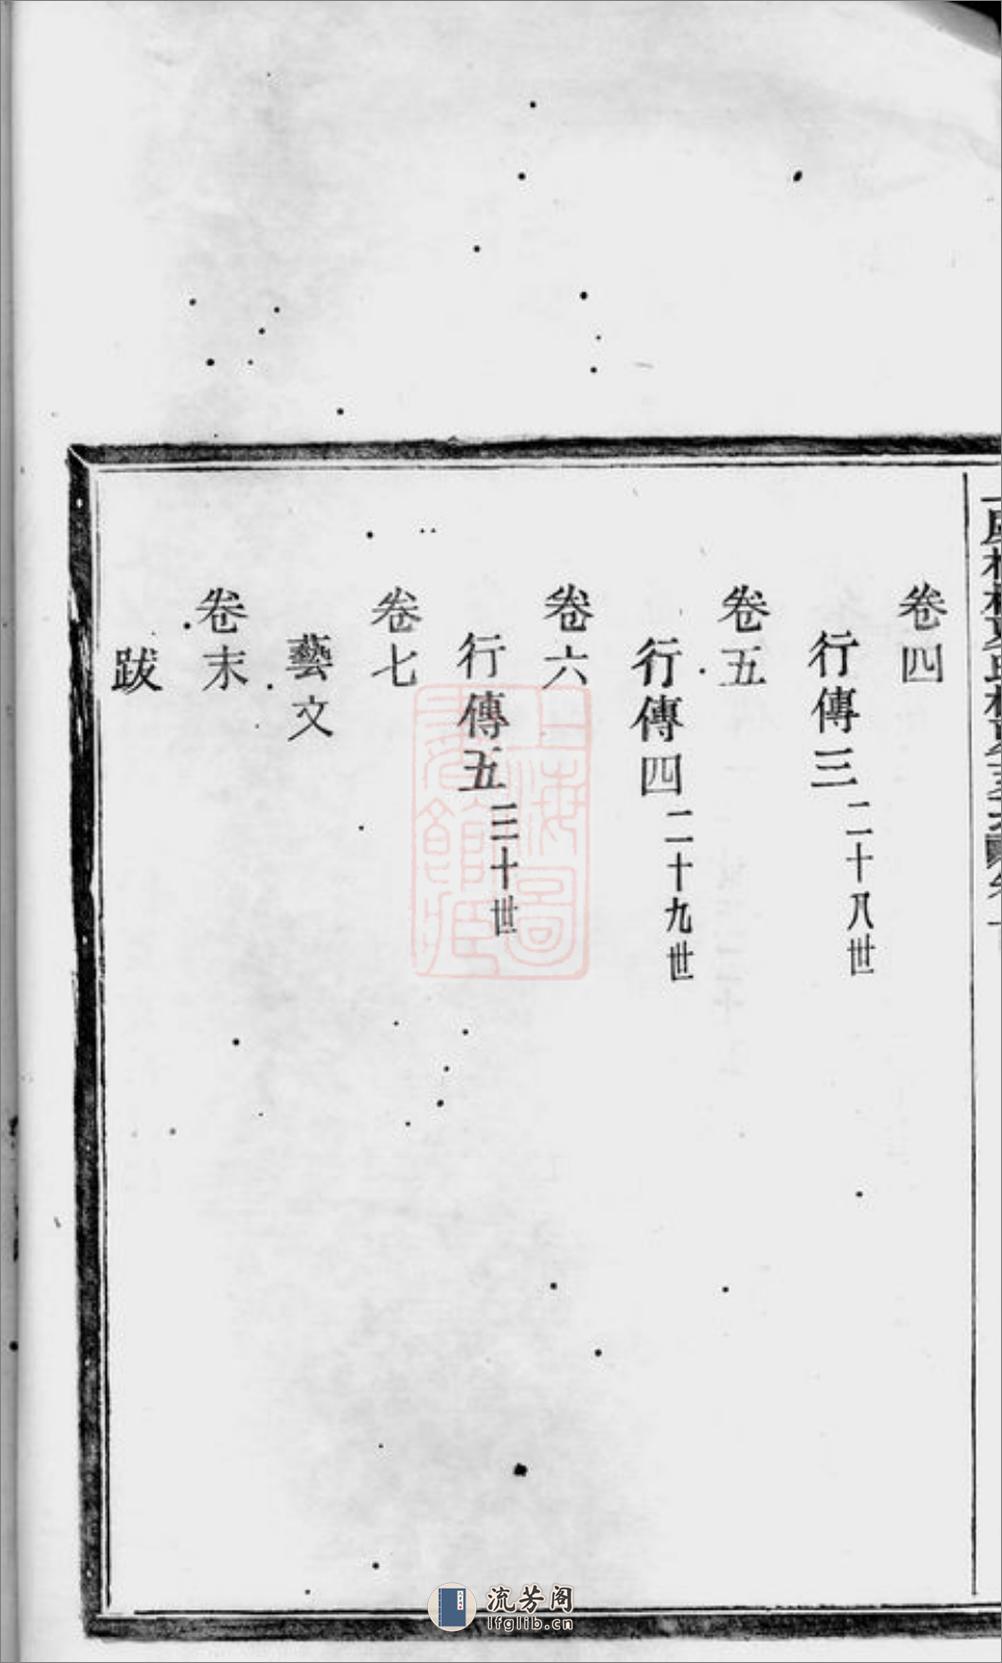 卷四
行傳三 二十八世
卷五
行傳四 二十九世
卷六
行傳五 三十世
卷七
藝文
卷末
跋
上海圖書館藏
流芳阁
lfglib.cn